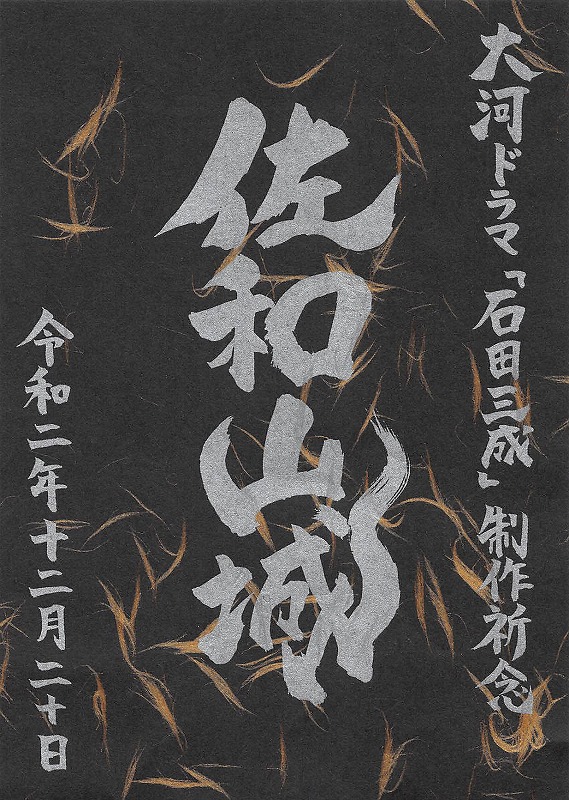 大河ドラマ「石田三成」制作祈念
佐和山城
令和二年十二月二十日